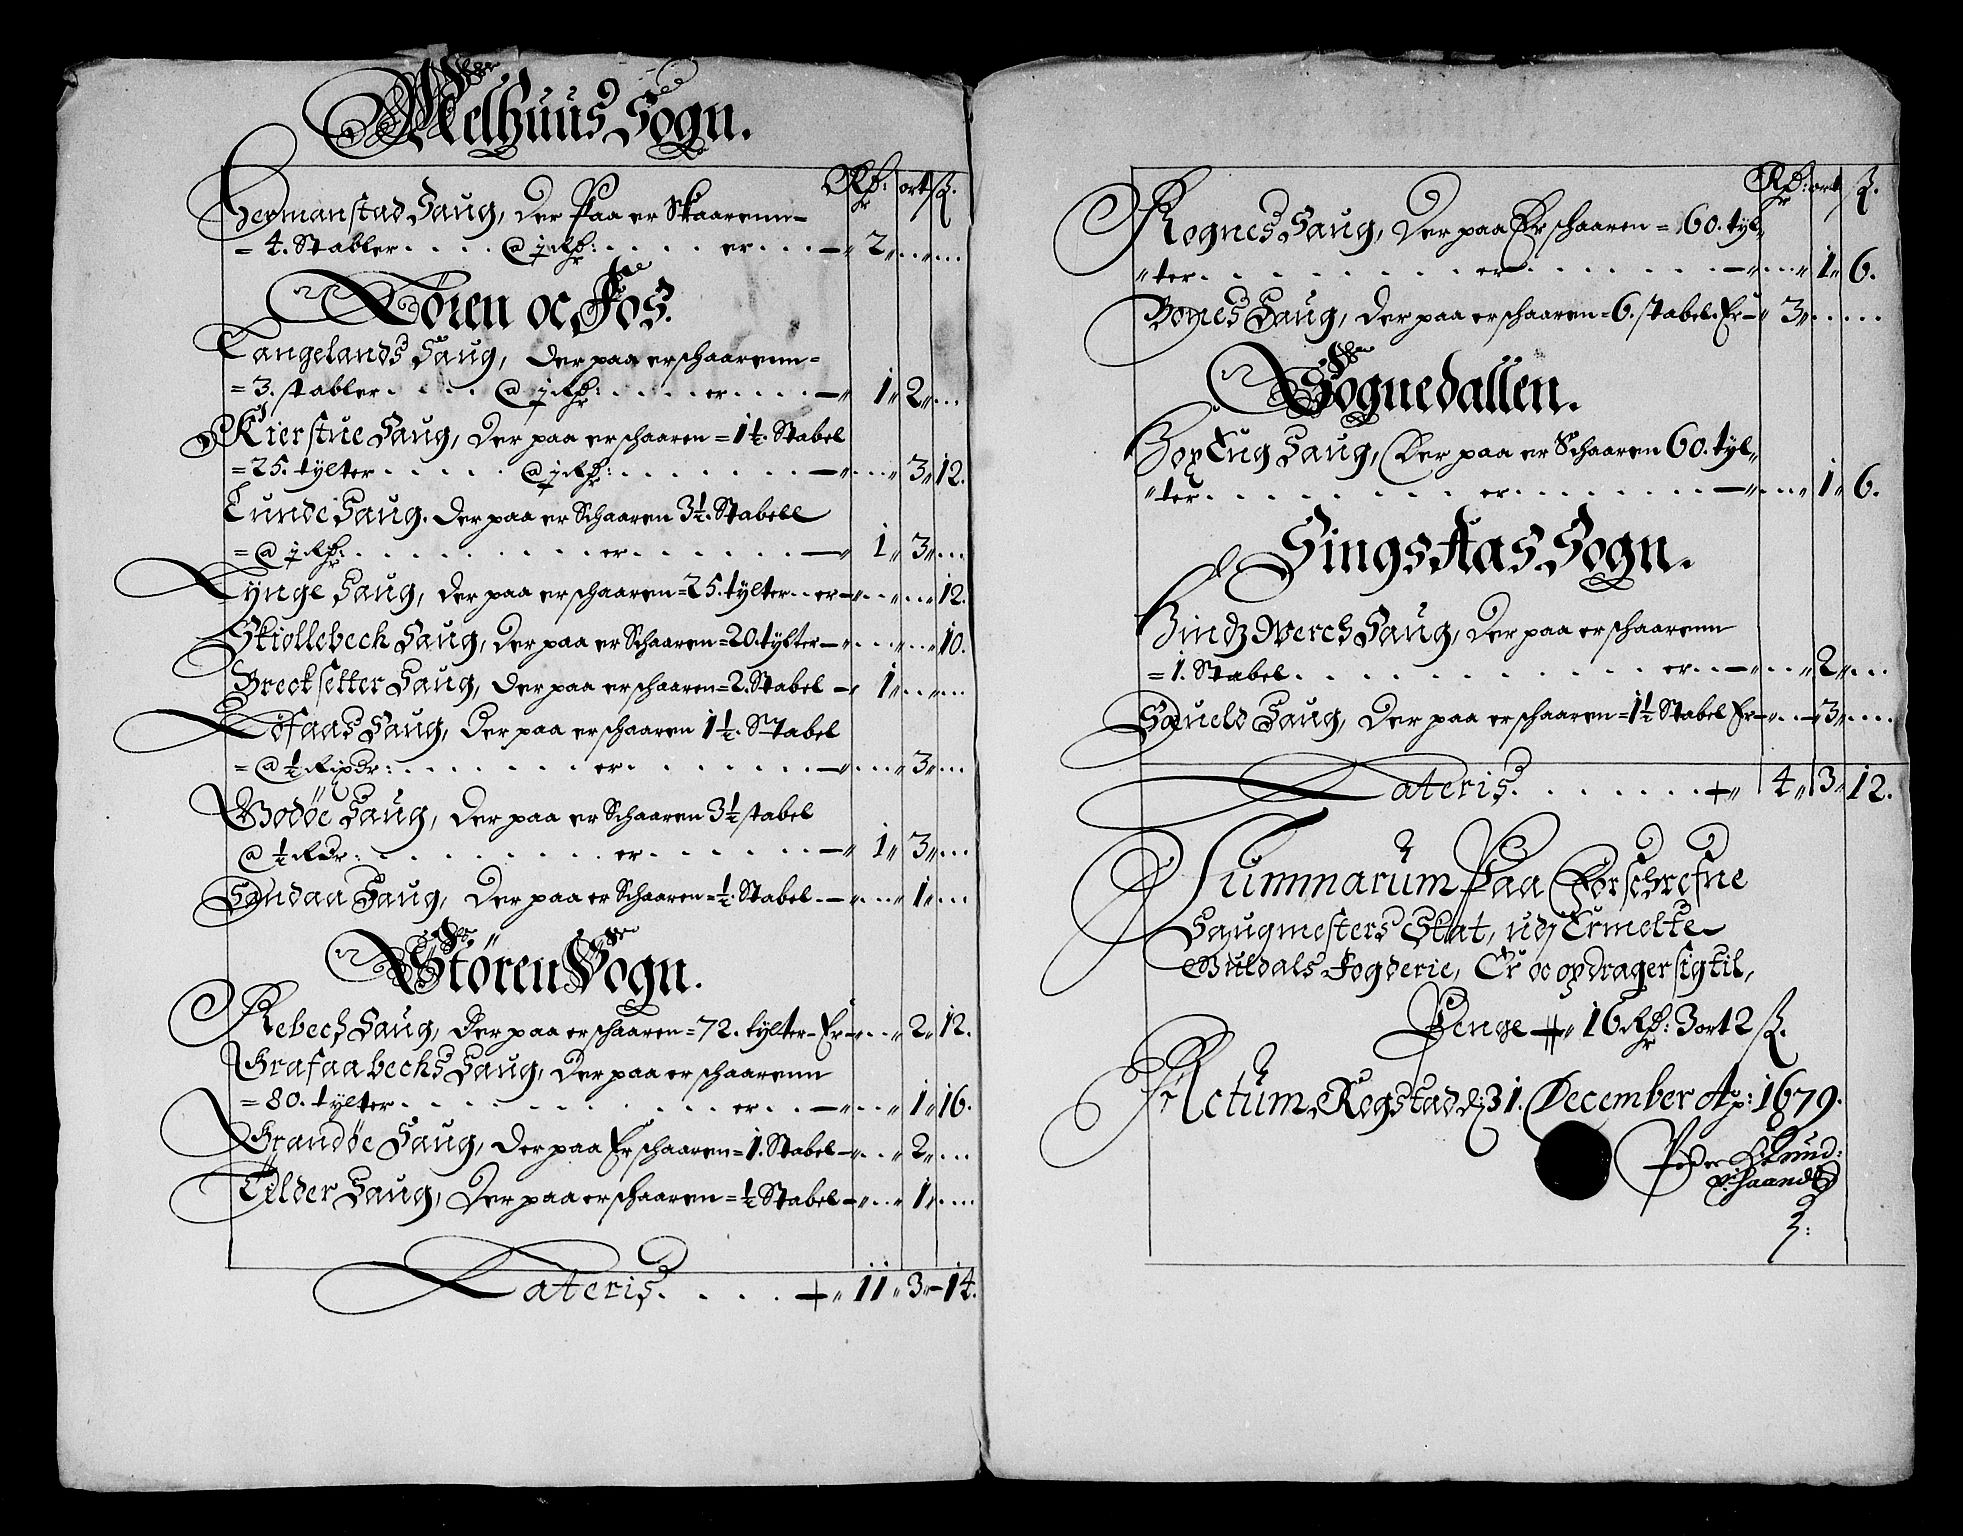 Melhuus Sogn.
Rdr: ort ß.
Hermanstad Saug, der Paa er Skaarenn
= 4. Stabler . . . . @ ½ Rdr: . . . . er . . . — 2 „ . . „ . . .
Løren oc Fos.
Langelands Saug, der paa er schaarenn =
= 3. stabler . . . . @ ½ Rdr: . . . . er . . . . — 1 „ 2 „ . . .
Kierstue Saug, der paa er schaaren = 1½. Stabel
= 25. tylter . . . . . @ ½ Rdr: . . . . . . — „ . . . „ 3 „ 12.
Lunde Saug. der paa er Schaaren 3½. Stabell
= @ ½ Rdr: . . . . . . . . er . . . . . . — „ 1 „ 3 „ . . .
Lynge Saug, der paa er schaaren = 25. tylter . . er — „ . . . „ . . . „ 12.
Skiollebech Saug, der paa er Schaaren = 20. tylter — „ . . . „ . . „ 10.
Brecksetter Saug, der paa er schaaren = 2. Stabel — „ 1 „ . . „ . . .
Lofaas Saug, der paa er schaaren 1½. Stabel
= @ ½ Rixdr: . . . . . . . er . . . . . . — „ . . . „ 3 „ . . .
Bodøe Saug, der paa er Schaaren 3½ stabel
@ ½ Rdr: . . . . . . . . er . . . . . — „ 1 „ 3 „ . . .
Sandaa Saug, der paa er Schaaren = ½. Stabel . — „ . . . „ 1 „ . . .
Støren Sogn.
Rebech Saug, der paa er schaaren = 72. tylter — Er — „ . . . „ 2 „ 12.
Grafaabechs Saug, der paa er schaarenn
= 80. tylter . . . . . . . . . . . er . . . — „ . . . „ 1 „ 16.
Grandøe Saug, der paa Er schaaren = 1. Stabel — „ . . . „ 2 „ . . .
Tilder Saug, der paa er schaaren = ½ Stabel — „ . . . „ 1 „ . . . .
Lateris . . . . . + „ 11 „ 3 „ 14.
Rdr: ort ß.
Rognes Saug, der paa Er schaaren = 60. tyl„
„ter . . . . . . . . . er . . . . . . . — „ . . . „ 1 „ 6.
Bones Saug, der paa er schaaren = 6. stabel. Er — „ 3 „ . . . . .
Sognedallen.
Hoxlug Saug, der paa er Schaaren 60. tyl„
„ter . . . . . . . . . er . . . . . . . — „ . . . „ 1 „ 6.
Singsaas Sogn.
Hindz Werch Saug, der paa er schaarenn
= 1. Stabel . . . . . . . . . . . . er . . — „ . . . „ 2 „ . . .
Saueld Saug, der paa er schaaren = 1½ Stabel Er — „ . . „ 3 „ . . . .
Lateris . . . . . . . + „ 4 „ 3 „ 12.
Summarum Paa Forschrefne
Saugmesters Skat, udj Ermelte
Guldals Fogderie, Er oc opdrager sig til,
Penge + „ 16 Rdr: 3 ort 2 ß.
Actum Rogstad dj 31. December Ao: 1679.
Peder